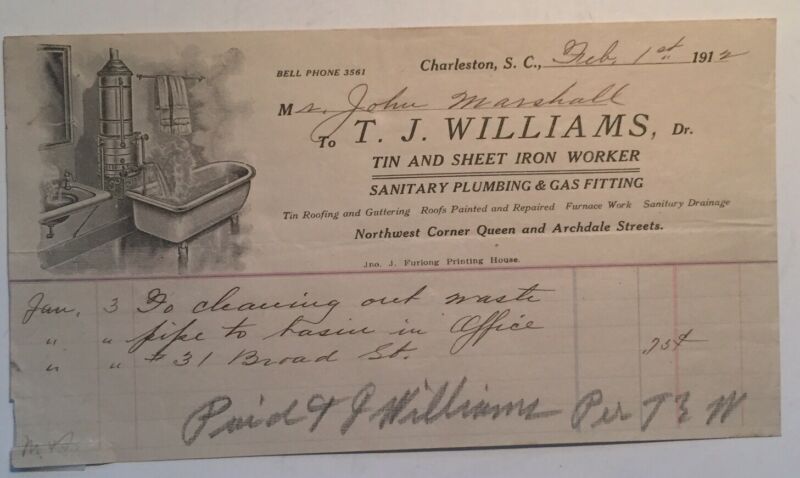 BELL PHONE 3561
Charleston, S. C., Feb. 1st 1912
Mr. John Marshall
To T. J. WILLIAMS, Dr.
TIN AND SHEET IRON WORKER
SANITARY PLUMBING & GAS FITTING
Tin Roofing and Guttering Roofs Painted and Repaired Furnace Work Sanitary Drainage
Northwest Corner Queen and Archdale Streets.
Jno. J. Furlong Printing House.
Jan. 3 To cleaning out waste
" " pipe to basin in Office
" " #31 Broad St. .75¢
Paid T J Williams Per T E W